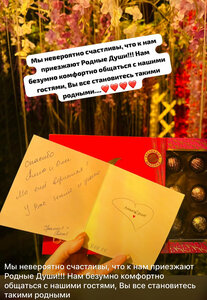 Мы невероятно счастливы, что к нам
приезжают Родные Души!!! Нам
безумно комфортно общаться с нашими
гостями, Вы все становитесь такими
родными....❤️❤️❤️❤️
Спасибо
Мы ещё вернёмся!
У вас
Мы невероятно счастливы, что к нам приезжают
Родные Души!!! Нам безумно комфортно
общаться с нашими гостями, Вы все становитесь
такими родными